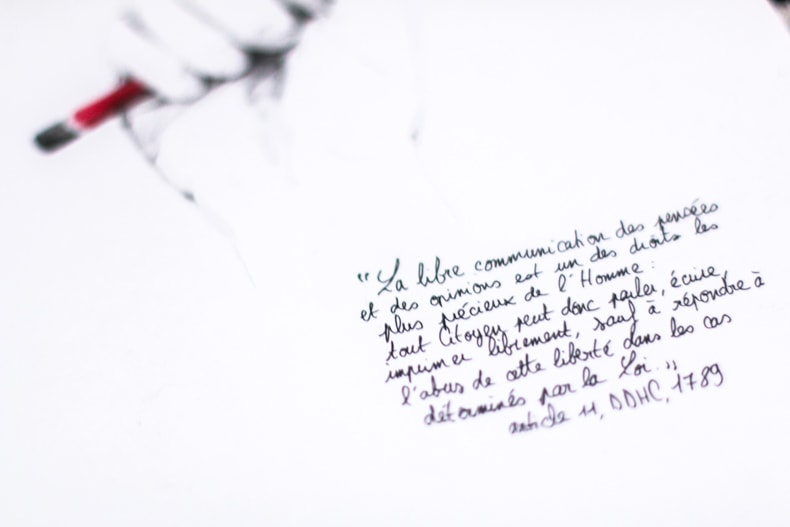 "La libre communication des pensées
et des opinions est un des droits les
plus précieux de l'Homme :
tout Citoyen peut donc parler, écrire,
imprimer librement, sauf à répondre à
l'abus de cette liberté dans les cas
déterminés par la Loi."
article 11, DDHC, 1789